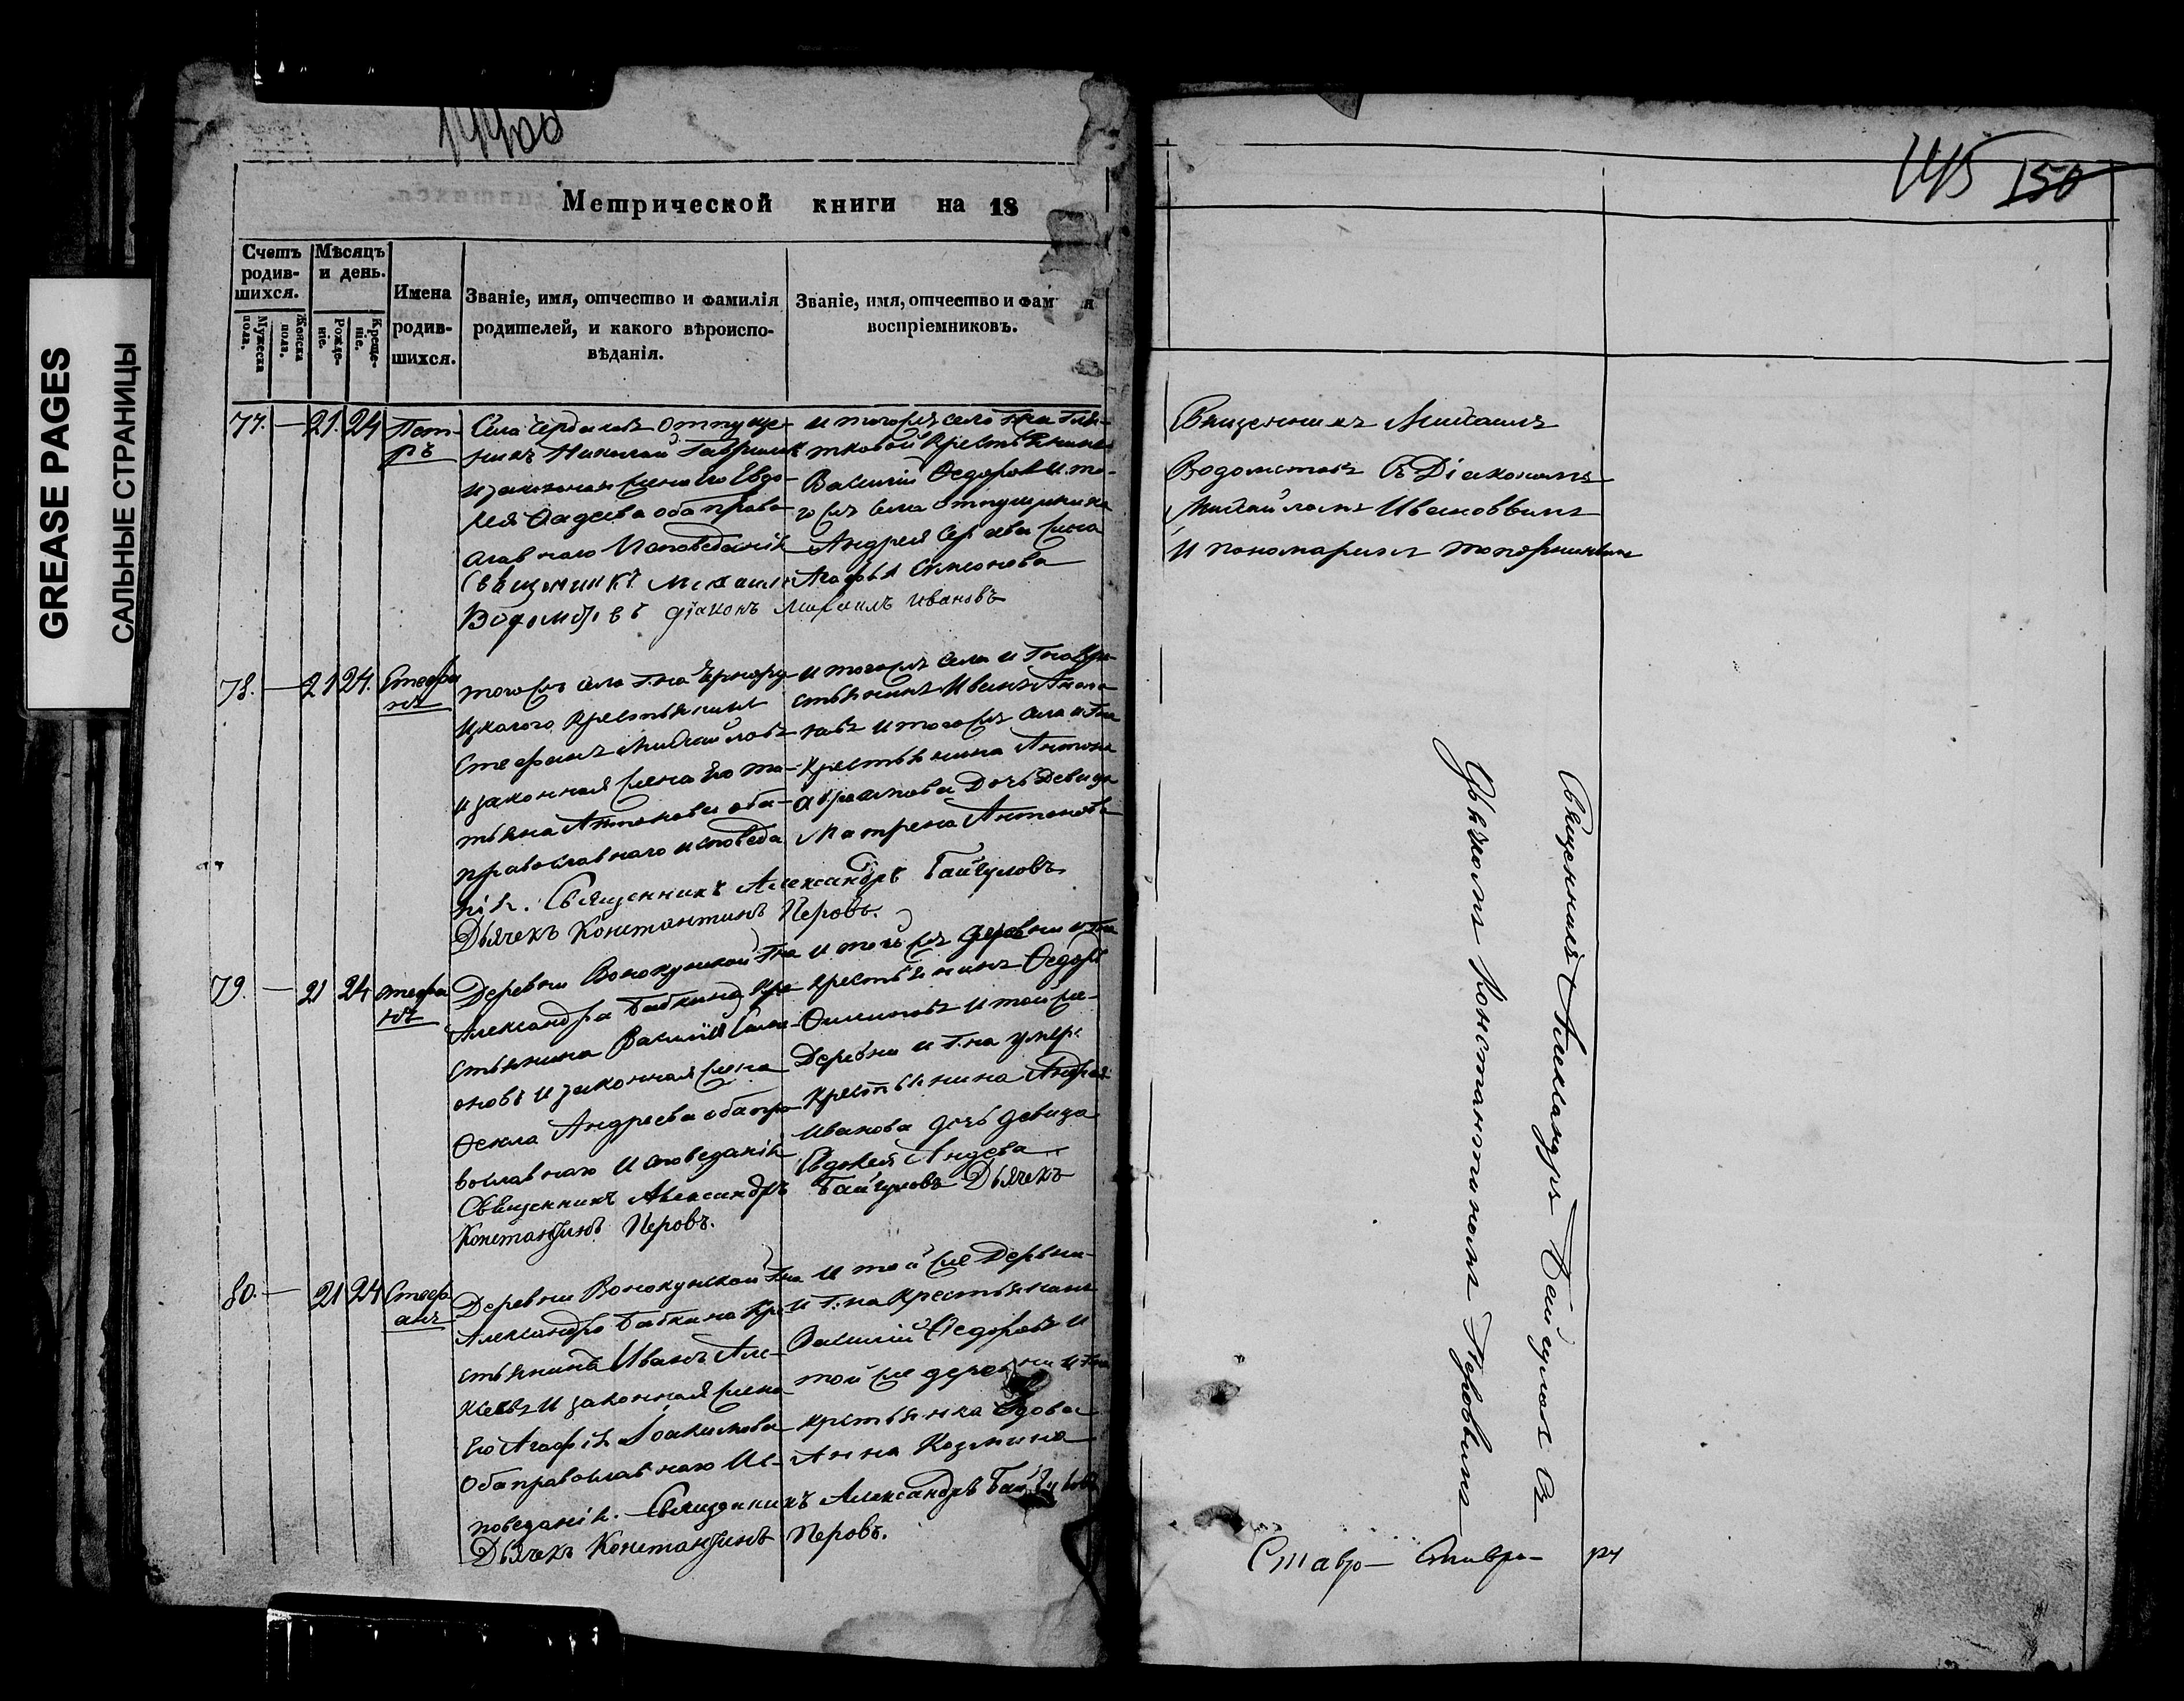 GREASE PAGES
САЛЬНЫЕ СТРАНИЦЫ
Метрической книги на 18
Счетъ родив-шихся.
Мужеска пола.
Женска пола.
Мѣсяцъ и день.
Рожде-ніе.
Креще-ніе.
Имена родив-шихся.
Званіе, имя, отчество и фамилія
родителей, и какого вѣроиспо-
вѣданія.
Званіе, имя, отчество и фам я
воспріемниковъ.
77. — 21. 24 Пет-
ръ
Села Чердаковъ Отпуще-
никъ Николай Гаврилов
и законная жена его Евдо-
кея Фадеева оба право
славнаго Исповеданія
Священникъ Михаилъ
Водомотовъ діаконъ Михаилъ Ивановъ
и тогожъ села Гна
крестьянинъ
Василий Федоровъ и то-
гожъ села отпущеника
Андрея Сергѣева жена
Агафья Симонова
78. — 21 24. Стефа
нъ
тогожъ села Гна
крестьянинъ
Стефанъ Михайловъ
и законная жена его та-
тьяна Антонова оба
православнаго исповеда
нія. Священникъ Александръ Байгуловъ
Дьячекъ Константинъ Перовъ.
и тогожъ села и Гна кре-
стьянинъ Иванъ
и тогожъ села и Гна
крестьянина Антона
Абрамова Дочь Девица
Матрена Антонова
79. — 21 24 стефа
нъ
Деревни Вонокунской Гна
Александра Бабкина кре-
стьянина Василія Сим-
оновъ и законная жена
Фекла Андреева оба пра-
вославнаго исповеданія
Священникъ Александръ Байгуловъ Дьячекъ
Константинъ Перовъ.
и тогожъ деревни и Гна
крестьянинъ Федоръ
Филиповъ и той же
Деревни и Гна умер:
крестьянина Андрея
Иванова дочь девица
Евдокея Андеева
80. — 21 24 Стеф
анъ
Деревни Вонокунской Гна
Александра Бабкина кре
стьянинъ Иванъ Але-
ксеевъ и законная жена
его Агафія Іоакимова
Оба православнаго Ис-
поведанія. Священникъ Александръ Байгуловъ
Дьячекъ Константинъ Перовъ.
и той же Деревни
и Гна крестьянинъ
Василий Федоровъ и
той же деревни и Гна
крестьянка вдова
Анна Козмина
145 150
Священникъ Михаилъ
Водомотовъ съ Діакономъ
Михайломъ Ивановымъ
и пономаремъ
Священникъ Александръ Байгуловъ съ
Дьячкомъ Константиномъ Перовымъ
Ставро— Ставро—